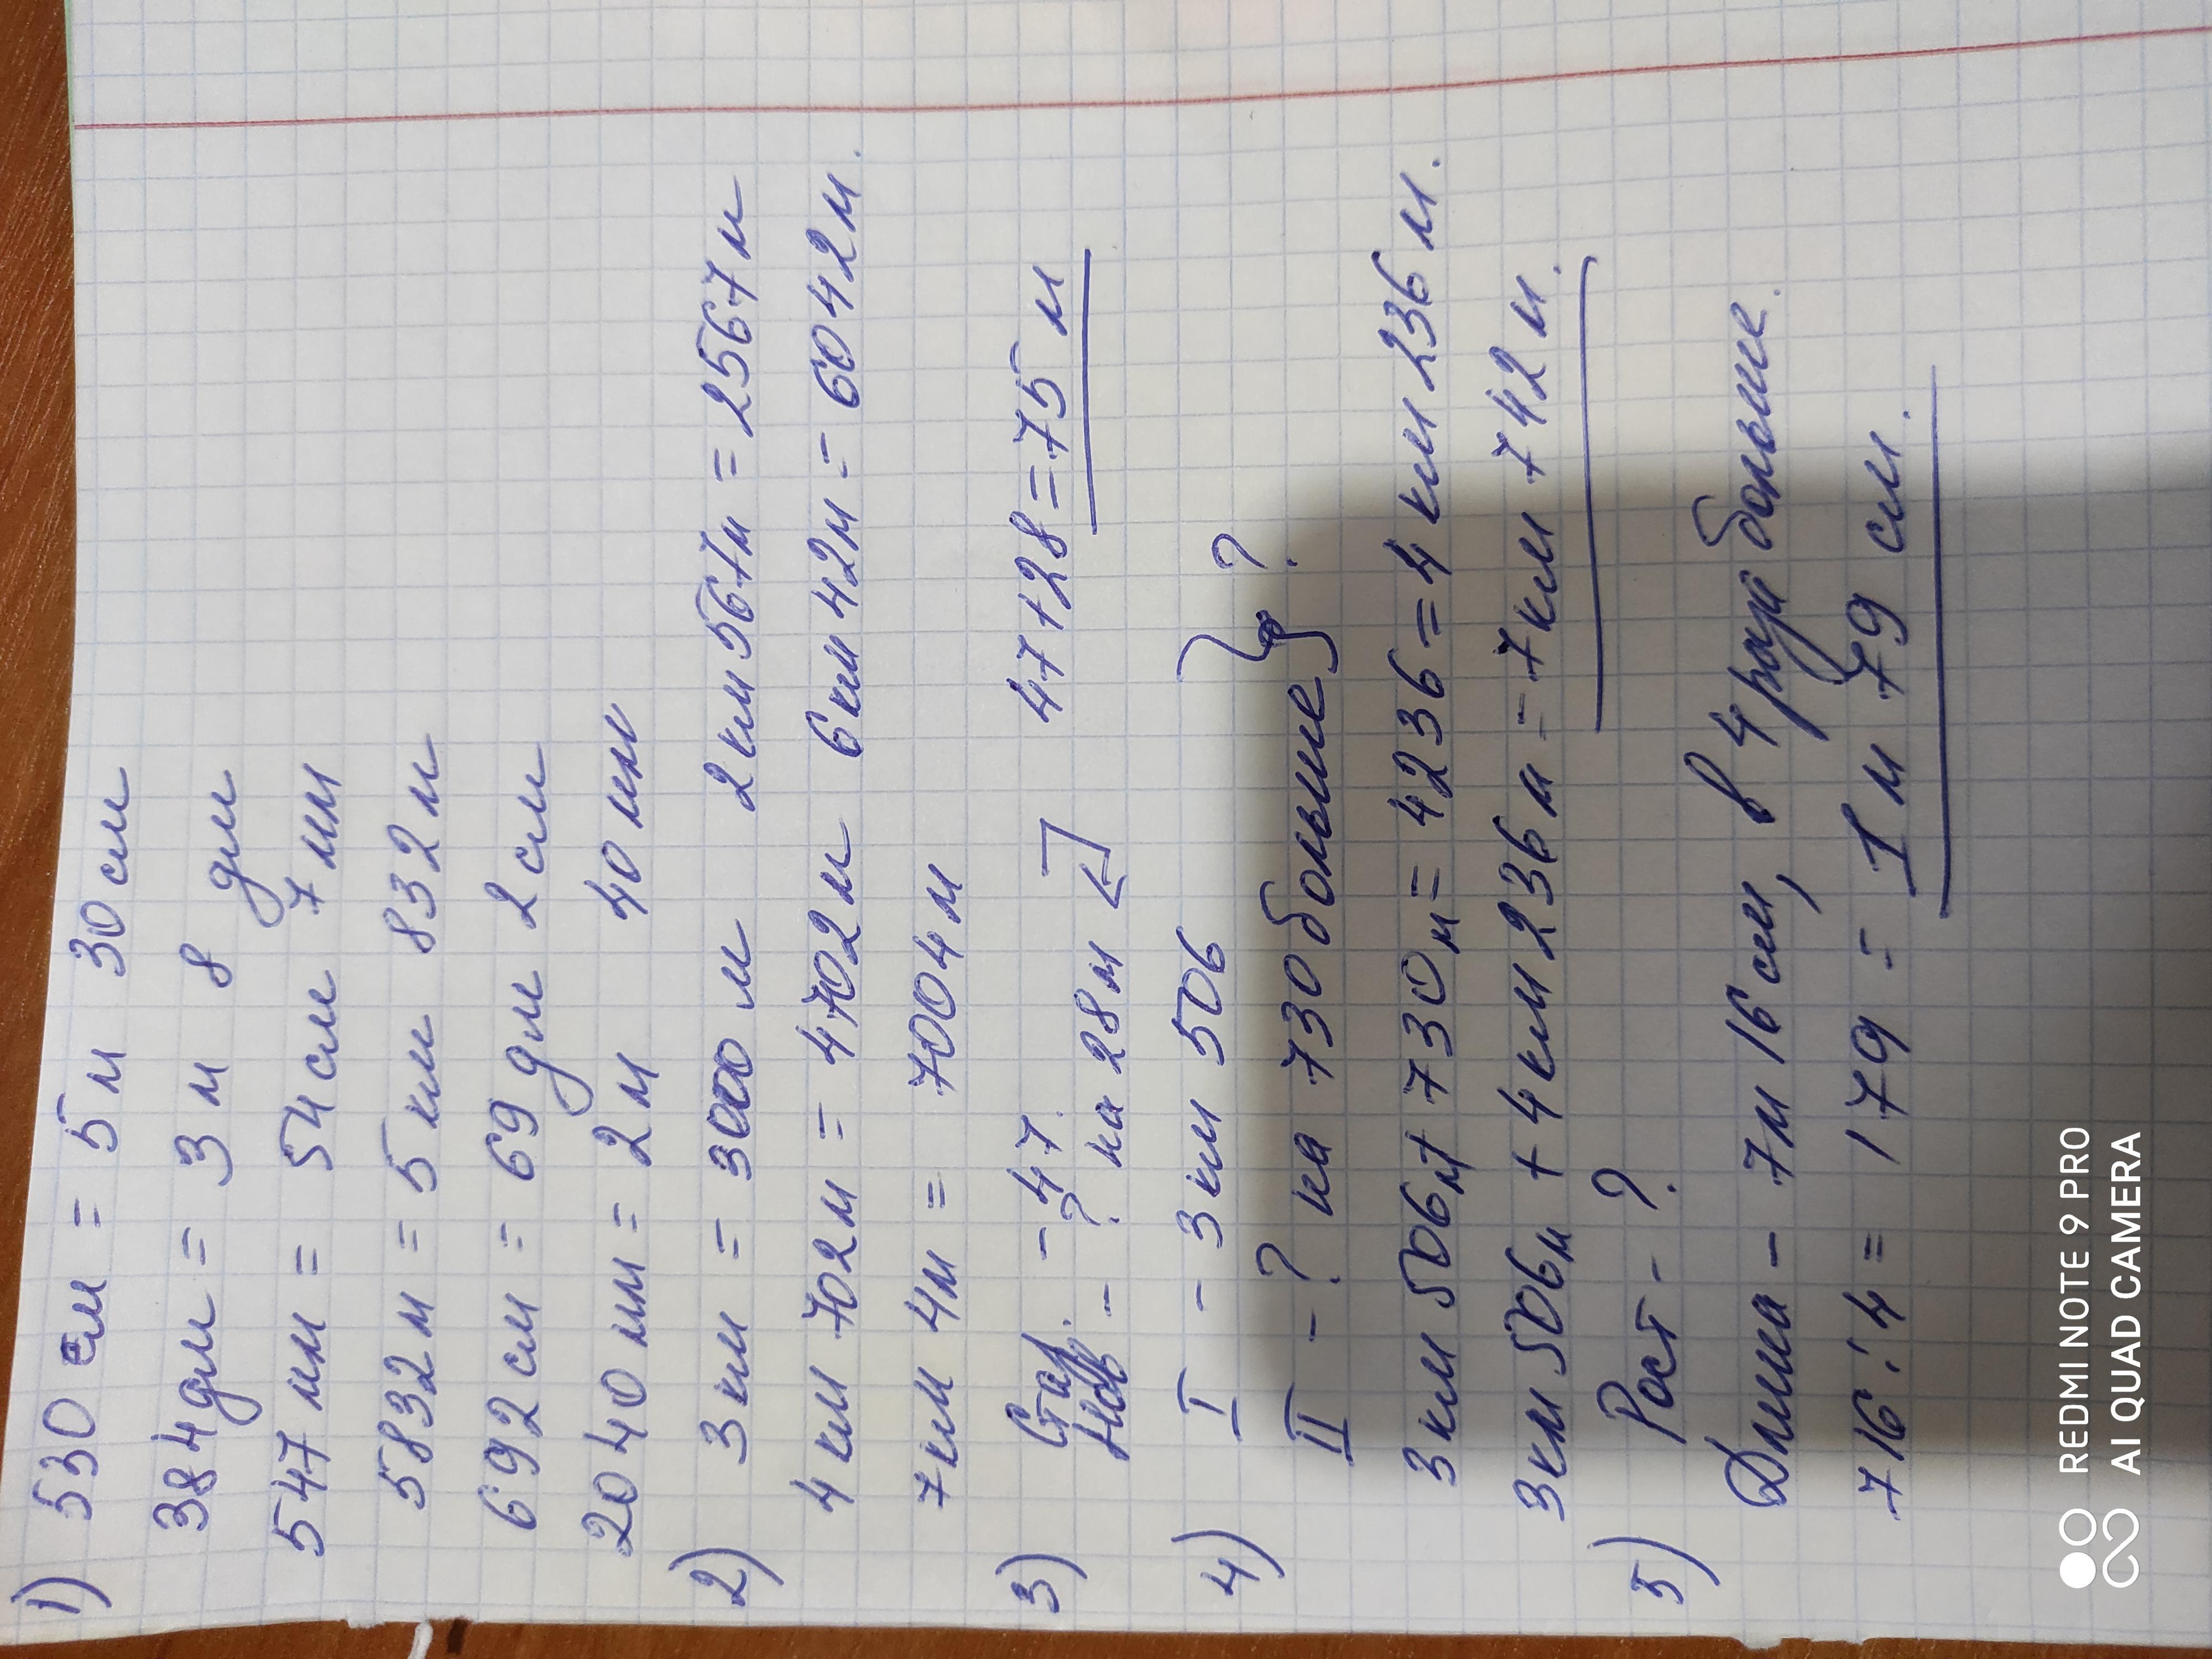 1) 530 см = 5 м 30 см
384 дм = 3 м 8 дм
547 мм = 54 см 7 мм
5832 м = 5 км 832 м
692 см = 69 дм 2 см
2040 мм = 2 м 40 мм
2) 3 км = 3000 м 2 км 567 м = 2567 м
4 км 702 м = 4702 м 6 км 42 м = 6042 м.
7 км 4 м = 7004 м
3) Стар. - 47.
Нов. - ? на 28 м 47+28=75 м
4) I - 3 км 506
II - ? на 730 больше } ?
3 км 506 м + 730 м = 4236 = 4 км 236 м.
3 км 506 м + 4 км 236 м = 7 км 742 м.
5) Рост - ?
Длина - 7 м 16 см, в 4 раза больше.
716 : 4 = 179 = 1 м 79 см.
REDMI NOTE 9 PRO
AI QUAD CAMERA